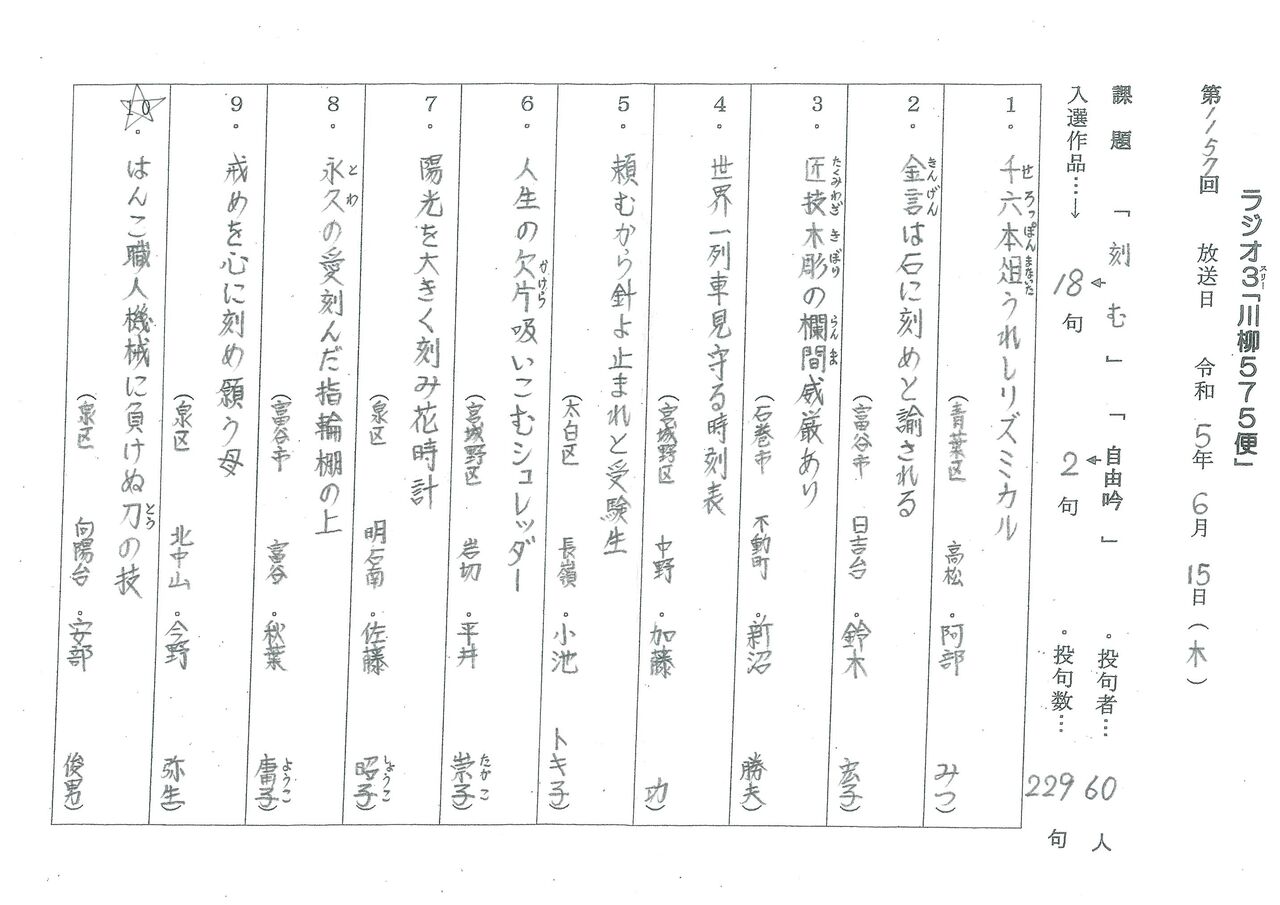 ラジオ3「川柳575便」
スリー
第1157回 放送日 令和 5年 6月 15日(木)
課題 「刻む」 「自由吟」 ・投句者… 60人
入選作品…→ 18句 2句 ・投句数… 229句
1. 千六本俎うれしリズミカル
せろっぽんまないた
(青葉区 高松・阿部 みつ)
2. 金言は石に刻めと諭される
きんげん
(富谷市 日吉台・鈴木 宏子)
3. 匠技木彫の欄間威厳あり
たくみわざきぼり らんま
(石巻市 不動町・新沼 勝夫)
4. 世界一列車見守る時刻表
(宮城野区 中野・加藤 功)
5. 頼むから針よ止まれと受験生
(太白区 長嶺・小池 トキ子)
6. 人生の欠片吸いこむシュレッダー
かけら
(宮城野区 岩切・平井 崇子)
たかこ
7. 陽光を大きく刻み花時計
(泉区 明石南・佐藤 昭子)
しょうこ
8. 永久の愛刻んだ指輪棚の上
とわ
(富谷市 富谷・秋葉 庸子)
ようこ
9. 戒めを心に刻め願う母
(泉区 北中山・今野 弥生)
☆10. はんこ職人機械に負けぬ刀の技
とう
(泉区 向陽台・安部 俊男)